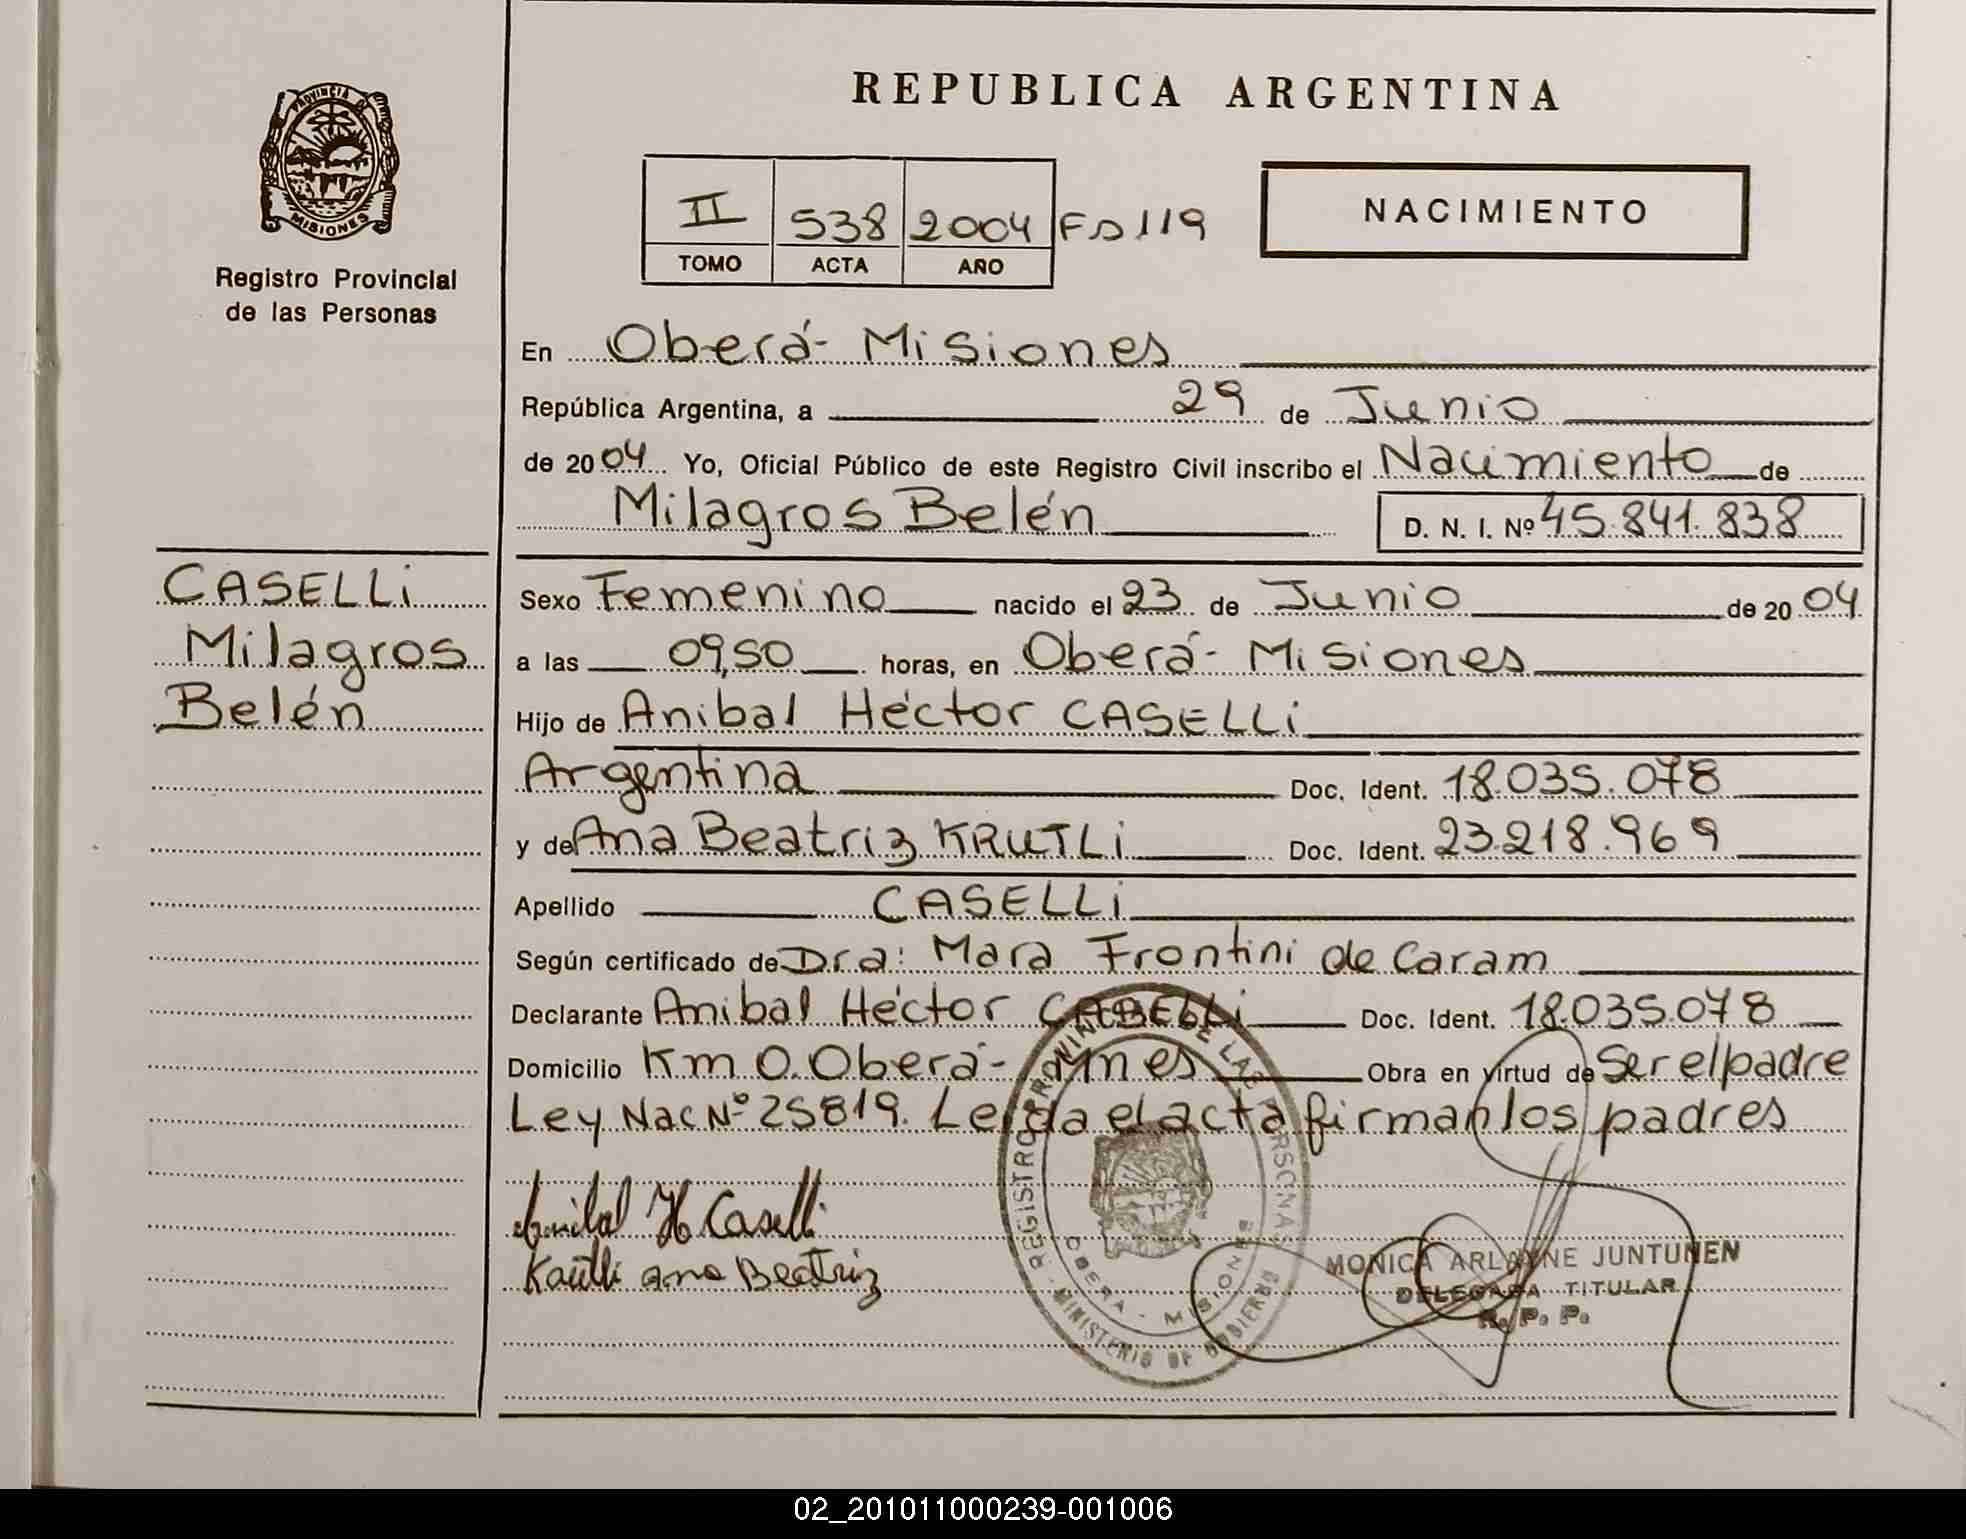 REPUBLICA ARGENTINA
PROVINCIA DE
MISIONES
Registro Provincial
de las Personas
II 538 2004 Fº 119
TOMO ACTA AÑO
NACIMIENTO
En Oberá- Misiones
República Argentina, a 29 de Junio
de 2004 Yo, Oficial Público de este Registro Civil inscribo el Nacimiento de
Milagros Belén D. N. I. Nº 45.841.838
CASELLi
Milagros
Belén
Sexo Femenino nacido el 23 de Junio de 2004
a las 09,50 horas, en Oberá- Misiones
Hijo de Anibal Héctor CASELLi
Argentina Doc. Ident. 18.035.078
y de Ana Beatriz KRUTLi Doc. Ident. 23.218.969
Apellido CASELLi
Según certificado de Dra: Mara Frontini de Caram
Declarante Anibal Héctor CASELLi Doc. Ident. 18.035.078
Domicilio Km 0. Oberá- Mnes Obra en virtud de Ser el padre
Ley Nac Nº 25819. Leida el acta firman los padres
Anibal H Caselli
Ana Beatriz
REGISTRO PROVINCIAL DE LAS PERSONAS
OBERA - MISIONES
MINISTERIO DE GOBIERNO
MONICA ARLAYNE JUNTUNEN
DELEGADA TITULAR
R. P. P.
02_201011000239-001006